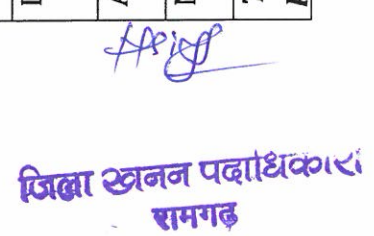 जिला खनन पदाधिकारी
रामगढ़